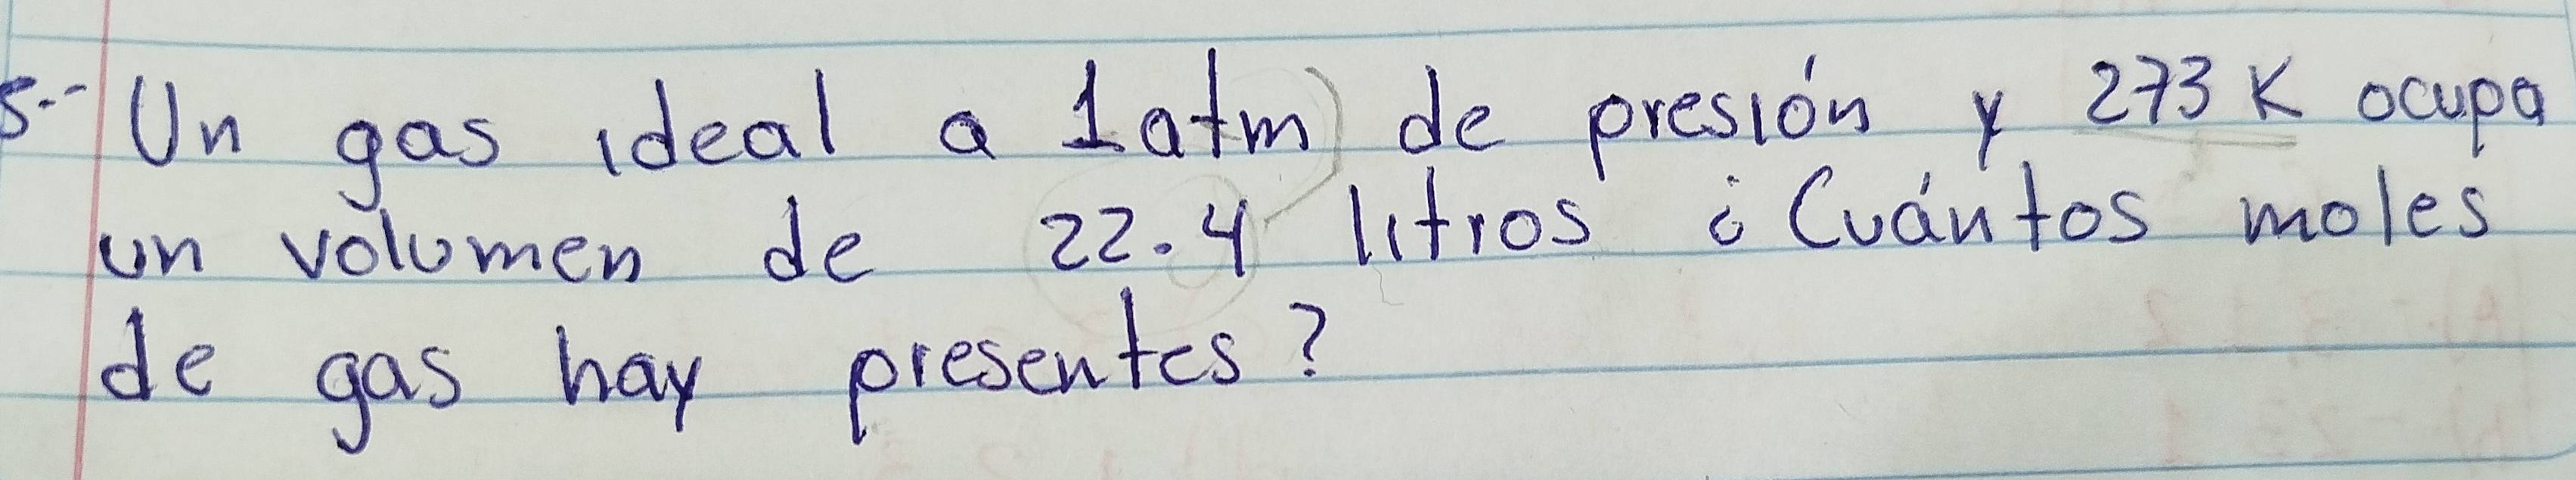 5.- Un gas ideal a 1 atm de presión y 273 K ocupa
un volumen de 22.4 litros ¿Cuántos moles
de gas hay presentes?